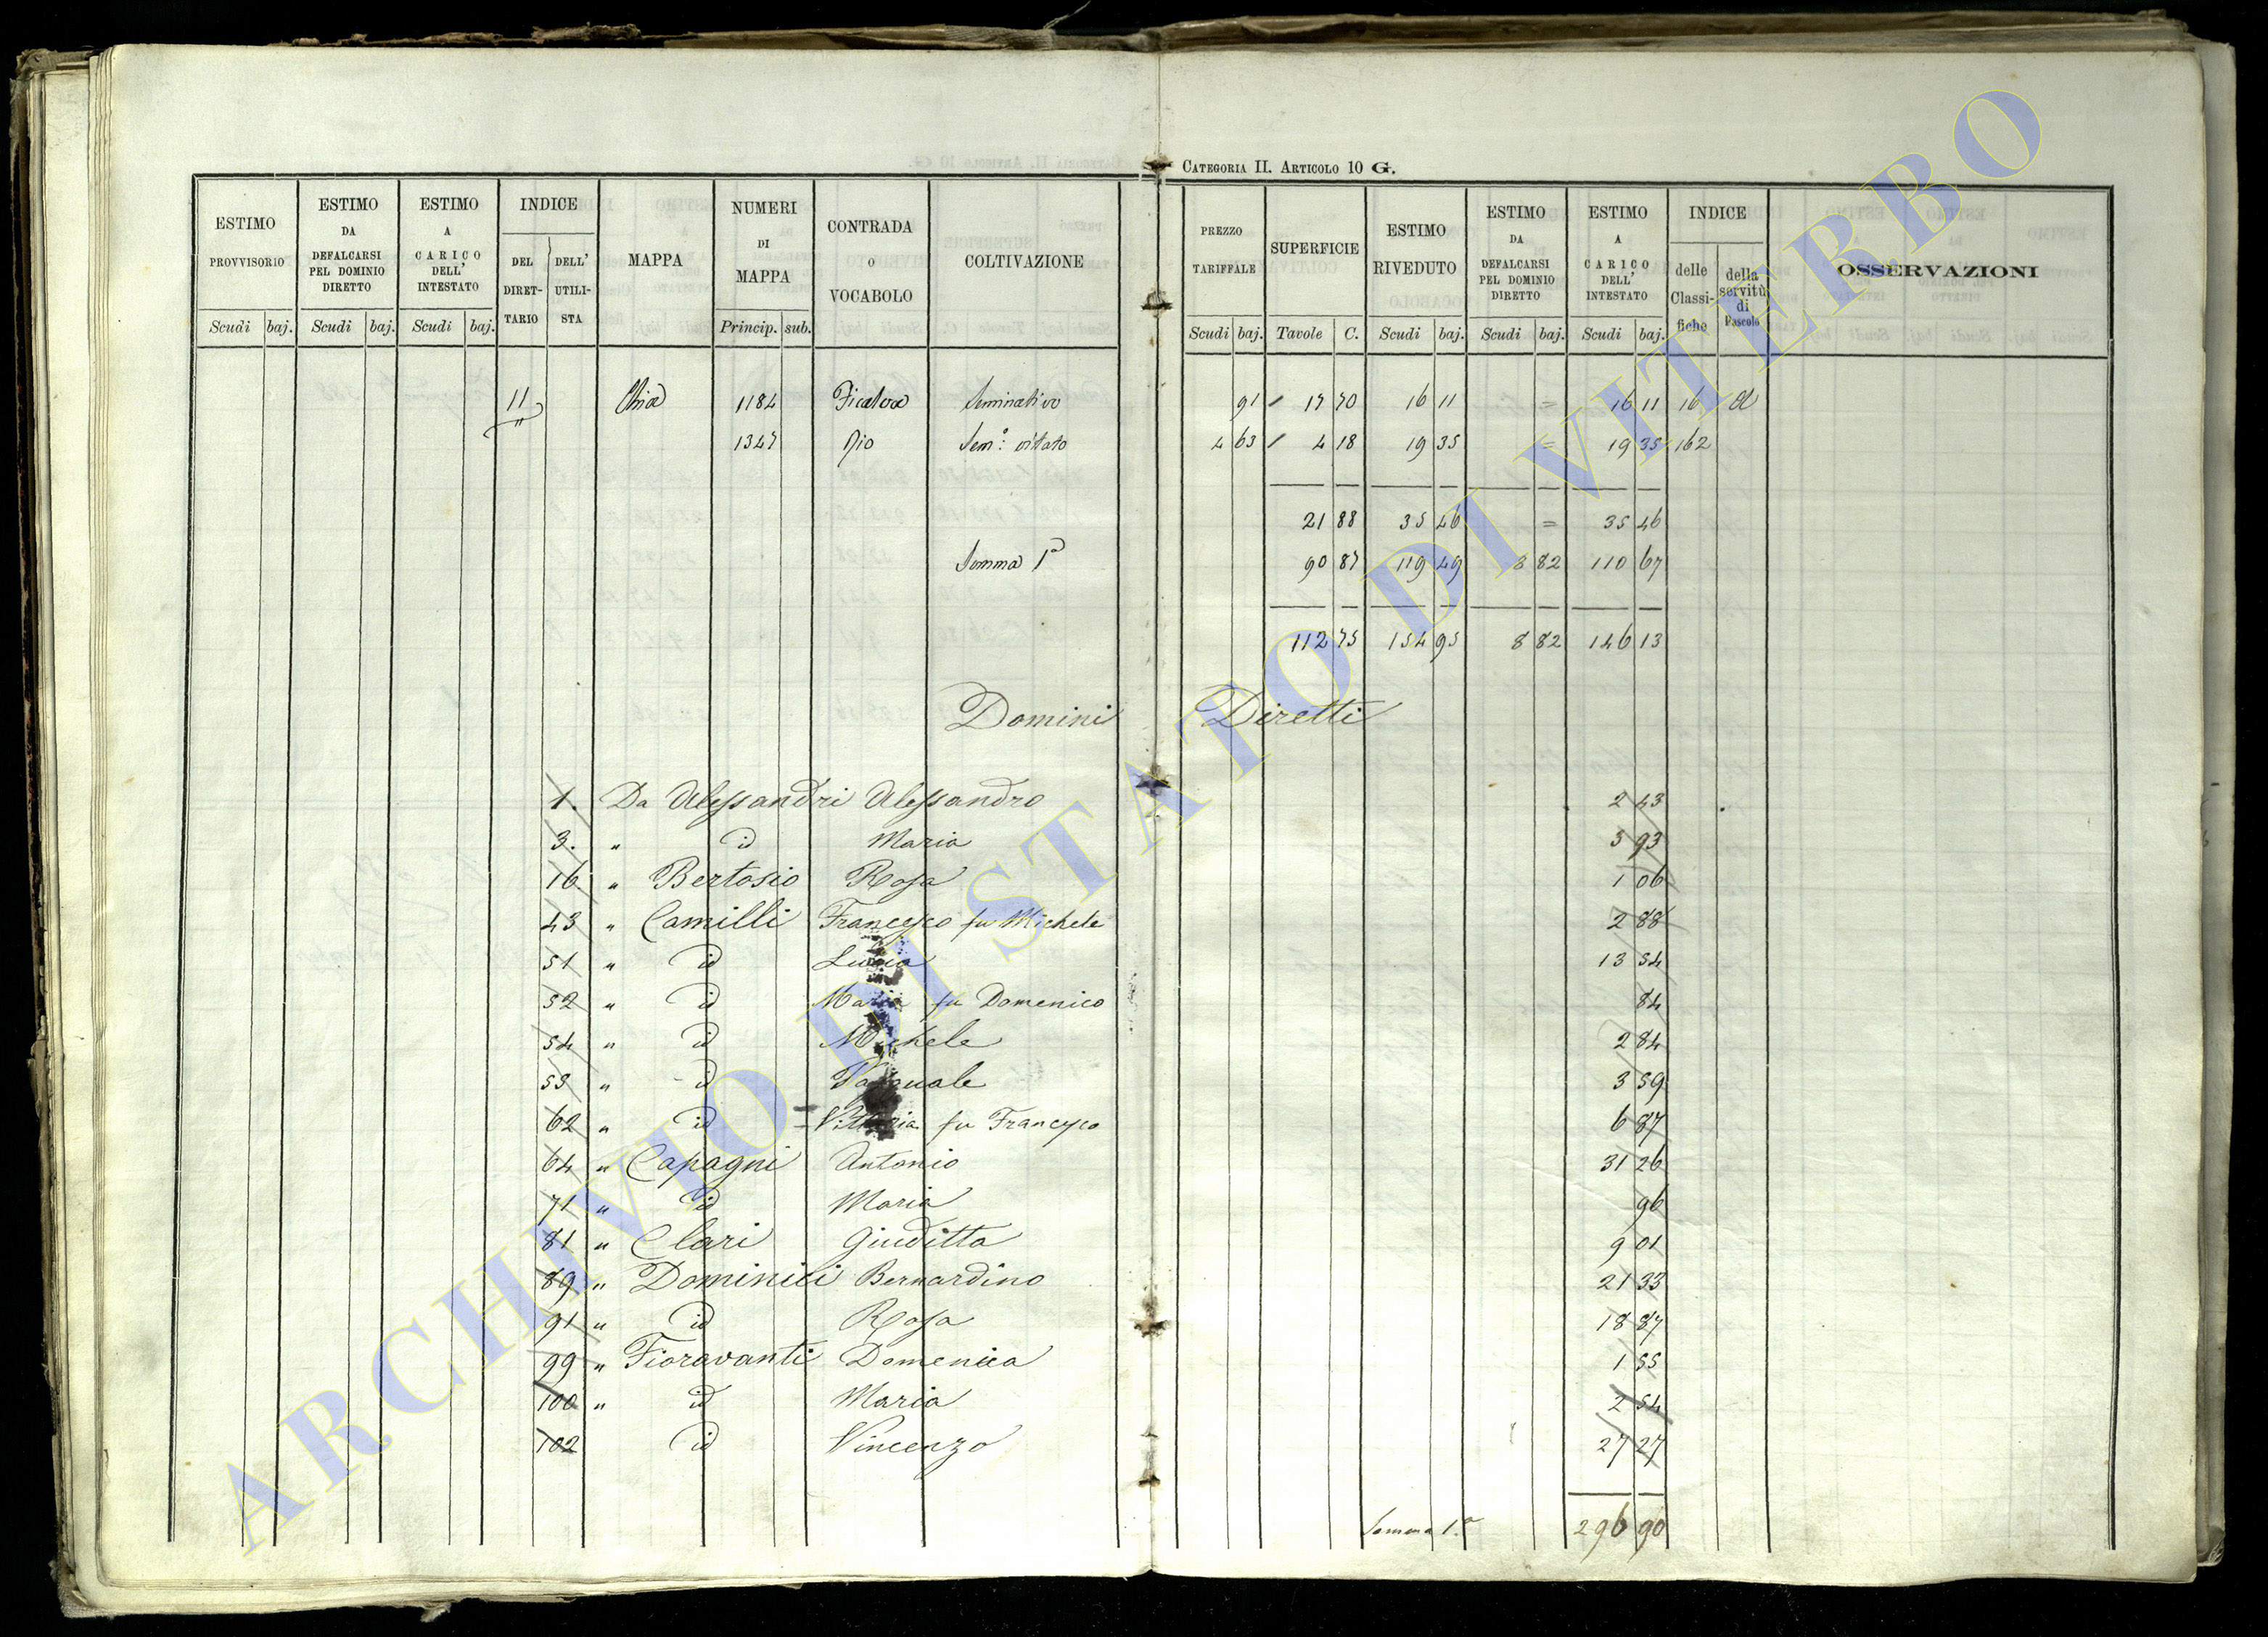 CATEGORIA II. ARTICOLO 10 G.
ESTIMO PROVVISORIO Scudi baj.
ESTIMO DA DEFALCARSI PEL DOMINIO DIRETTO Scudi baj.
ESTIMO A CARICO DELL' INTESTATO Scudi baj.
INDICE DEL DIRET-TARIO DELL' UTILI-STA
MAPPA
NUMERI DI MAPPA Princip. sub.
CONTRADA o VOCABOLO
COLTIVAZIONE
PREZZO TARIFFALE Scudi baj.
SUPERFICIE Tavole C.
ESTIMO RIVEDUTO Scudi baj.
ESTIMO DA DEFALCARSI PEL DOMINIO DIRETTO Scudi baj.
ESTIMO A CARICO DELL' INTESTATO Scudi baj.
INDICE delle Classi-fiche della servitù di Pascolo
OSSERVAZIONI
11 Chia 1184 Seminativo 91 17 70 16 11 = 16 11 16 a
1347 Rio Sem.o vitato 4 63 4 18 19 35 = 19 35 162
21 88 35 46 = 35 46
Somma 1a 90 87 119 49 8 82 110 67
112 75 154 95 8 82 146 13
Domini Diretti
1. Da Alessandri Alessandro 2 43
3. " id Maria 93
16 " Bertosio Rosa 1 06
43 " Camilli Francesco fu Michele 2 88
51 " id Lucia 13 54
52 " id Maria fu Domenico 84
54 " id Michele 2 84
" id Pasquale 3 59
62 " id Vittoria fu Francesco 6 87
64 " Capagni Antonio 31 26
71 " id Maria 96
81 " Clari Giuditta 9 01
89 " Dominici Bernardino 21 33
91 " id Rosa 18 87
99 " Fioravanti Domenica 1 55
100 " id Maria 2 54
102 id Vincenzo 27 27
Somma 1.a 296 90
ARCHIVIO DI STATO DI VITERBO